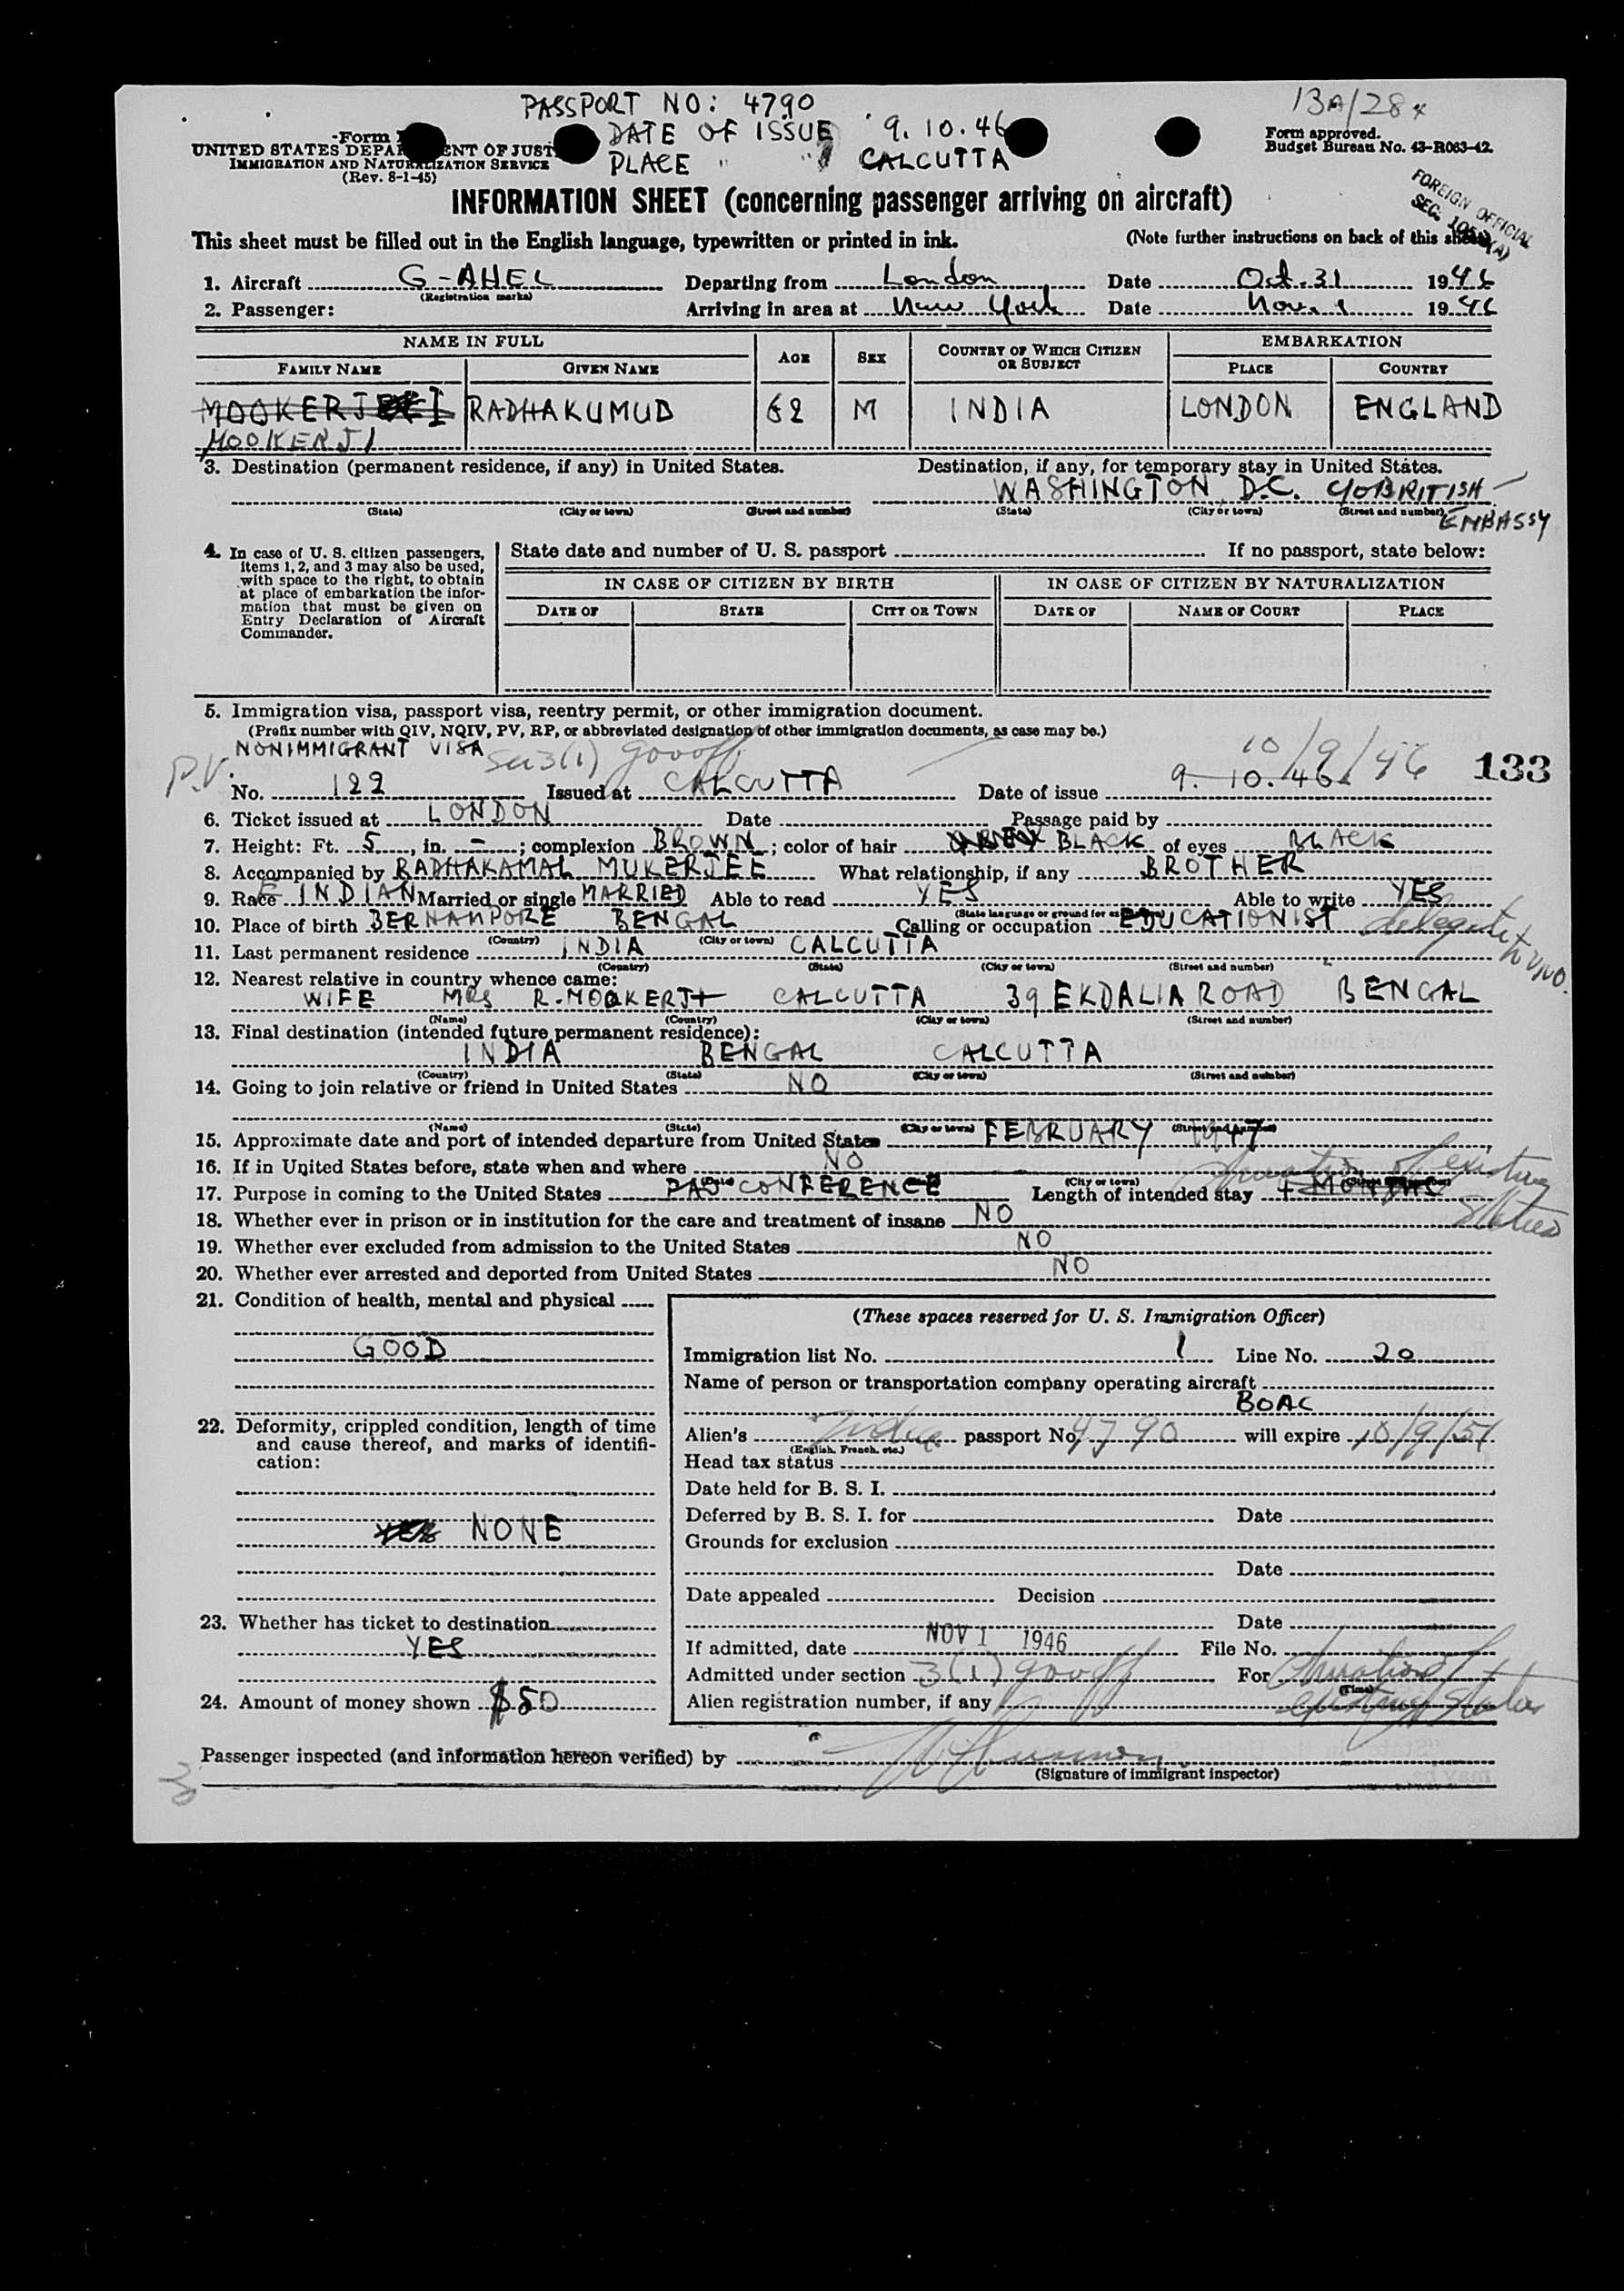 PASSPORT NO: 4790
13A/28
DATE OF ISSUE 9.10.46
PLACE " CALCUTTA
Form
UNITED STATES DEPARTMENT OF JUST
IMMIGRATION AND NATURALIZATION SERVICE
(Rev. 8-1-45)
Form approved.
Budget Bureau No. 43-R063-42.
FOREIGN OFFICIAL
SEC.
INFORMATION SHEET (concerning passenger arriving on aircraft)
This sheet must be filled out in the English language, typewritten or printed in ink. (Note further instructions on back of this sheet)
1. Aircraft G-AHEL Departing from London Date Oct. 31 1946
(Registration marks)
2. Passenger: Arriving in area at New York Date Nov. 1 1946
NAME IN FULL AGE SEX COUNTRY OF WHICH CITIZEN OR SUBJECT EMBARKATION
FAMILY NAME GIVEN NAME PLACE COUNTRY
MOOKERJI RADHAKUMUD 62 M INDIA LONDON ENGLAND
MOOKERJI
3. Destination (permanent residence, if any) in United States. Destination, if any, for temporary stay in United States.
WASHINGTON D.C. C/O BRITISH
EMBASSY
(State) (City or town) (Street and number) (State) (City or town) (Street and number)
4. In case of U. S. citizen passengers, items 1, 2, and 3 may also be used, with space to the right, to obtain at place of embarkation the information that must be given on Entry Declaration of Aircraft Commander.
State date and number of U. S. passport If no passport, state below:
IN CASE OF CITIZEN BY BIRTH IN CASE OF CITIZEN BY NATURALIZATION
DATE OF STATE CITY OR TOWN DATE OF NAME OF COURT PLACE
5. Immigration visa, passport visa, reentry permit, or other immigration document.
(Prefix number with QIV, NQIV, PV, RP, or abbreviated designation of other immigration documents, as case may be.)
NONIMMIGRANT VISA
P.V. Sec 3(1) gov off 10/9/46 133
No. 122 Issued at CALCUTTA Date of issue 9.10.46
6. Ticket issued at LONDON Date Passage paid by
7. Height: Ft. 5, in. -; complexion BROWN; color of hair BLACK of eyes BLACK
8. Accompanied by RADHAKAMAL MUKERJEE What relationship, if any BROTHER
9. Race E INDIAN Married or single MARRIED Able to read YES Able to write YES
(State language or ground for
10. Place of birth BERHAMPORE BENGAL Calling or occupation EDUCATIONIST delegate to UNO.
(Country) (City or town)
11. Last permanent residence INDIA CALCUTTA
(Country) (State) (City or town) (Street and number)
12. Nearest relative in country whence came:
WIFE MRS R. MOOKERJI CALCUTTA 39 EKDALIA ROAD BENGAL
(Name) (Country) (City or town) (Street and number)
13. Final destination (intended future permanent residence):
INDIA BENGAL CALCUTTA
(Country) (State) (City or town) (Street and number)
14. Going to join relative or friend in United States NO
(Name) (State) (City or town) (Street and number)
15. Approximate date and port of intended departure from United States FEBRUARY 1947
16. If in United States before, state when and where NO
(Date) (City or town) (Street and number)
duration of existing
status
17. Purpose in coming to the United States FAO CONFERENCE Length of intended stay 4 MONTHS
18. Whether ever in prison or in institution for the care and treatment of insane NO
19. Whether ever excluded from admission to the United States NO
20. Whether ever arrested and deported from United States NO
21. Condition of health, mental and physical
GOOD
22. Deformity, crippled condition, length of time
and cause thereof, and marks of identifi-
cation:
YES NONE
23. Whether has ticket to destination
YES
24. Amount of money shown $50
(These spaces reserved for U. S. Immigration Officer)
Immigration list No. 1 Line No. 20
Name of person or transportation company operating aircraft
BOAC
Alien's Indian passport No. 4790 will expire 10/9/51
(English, French, etc.)
Head tax status
Date held for B. S. I.
Deferred by B. S. I. for Date
Grounds for exclusion
Date
Date appealed Decision
Date
If admitted, date NOV 1 1946 File No.
Admitted under section 3(1) gov off For duration of
(Time)
Alien registration number, if any existing status
Passenger inspected (and information hereon verified) by
(Signature of immigrant inspector)
3